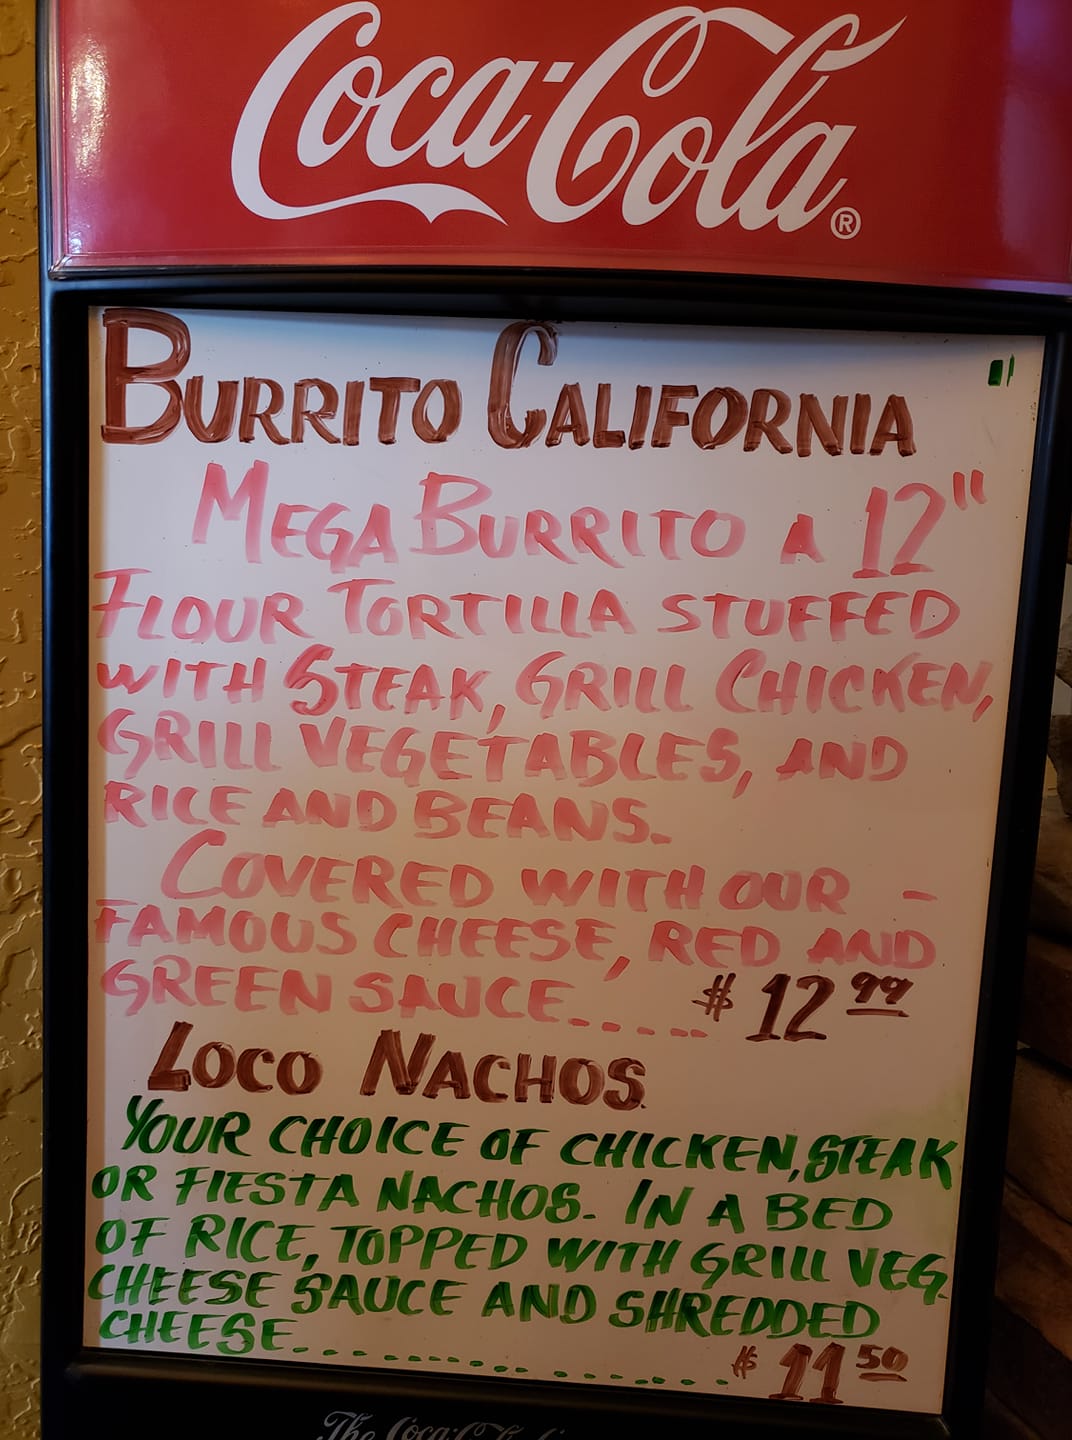 Coca-Cola®
BURRITO CALIFORNIA
MEGA BURRITO A 12"
FLOUR TORTILLA STUFFED
WITH STEAK, GRILL CHICKEN,
GRILL VEGETABLES, AND
RICE AND BEANS.
COVERED WITH OUR -
FAMOUS CHEESE, RED AND
GREEN SAUCE...... $12 99
LOCO NACHOS.
YOUR CHOICE OF CHICKEN, STEAK
OR FIESTA NACHOS. IN A BED
OF RICE, TOPPED WITH GRILL VEG.
CHEESE SAUCE AND SHREDDED
CHEESE................. $11 50
The Coca-Cola